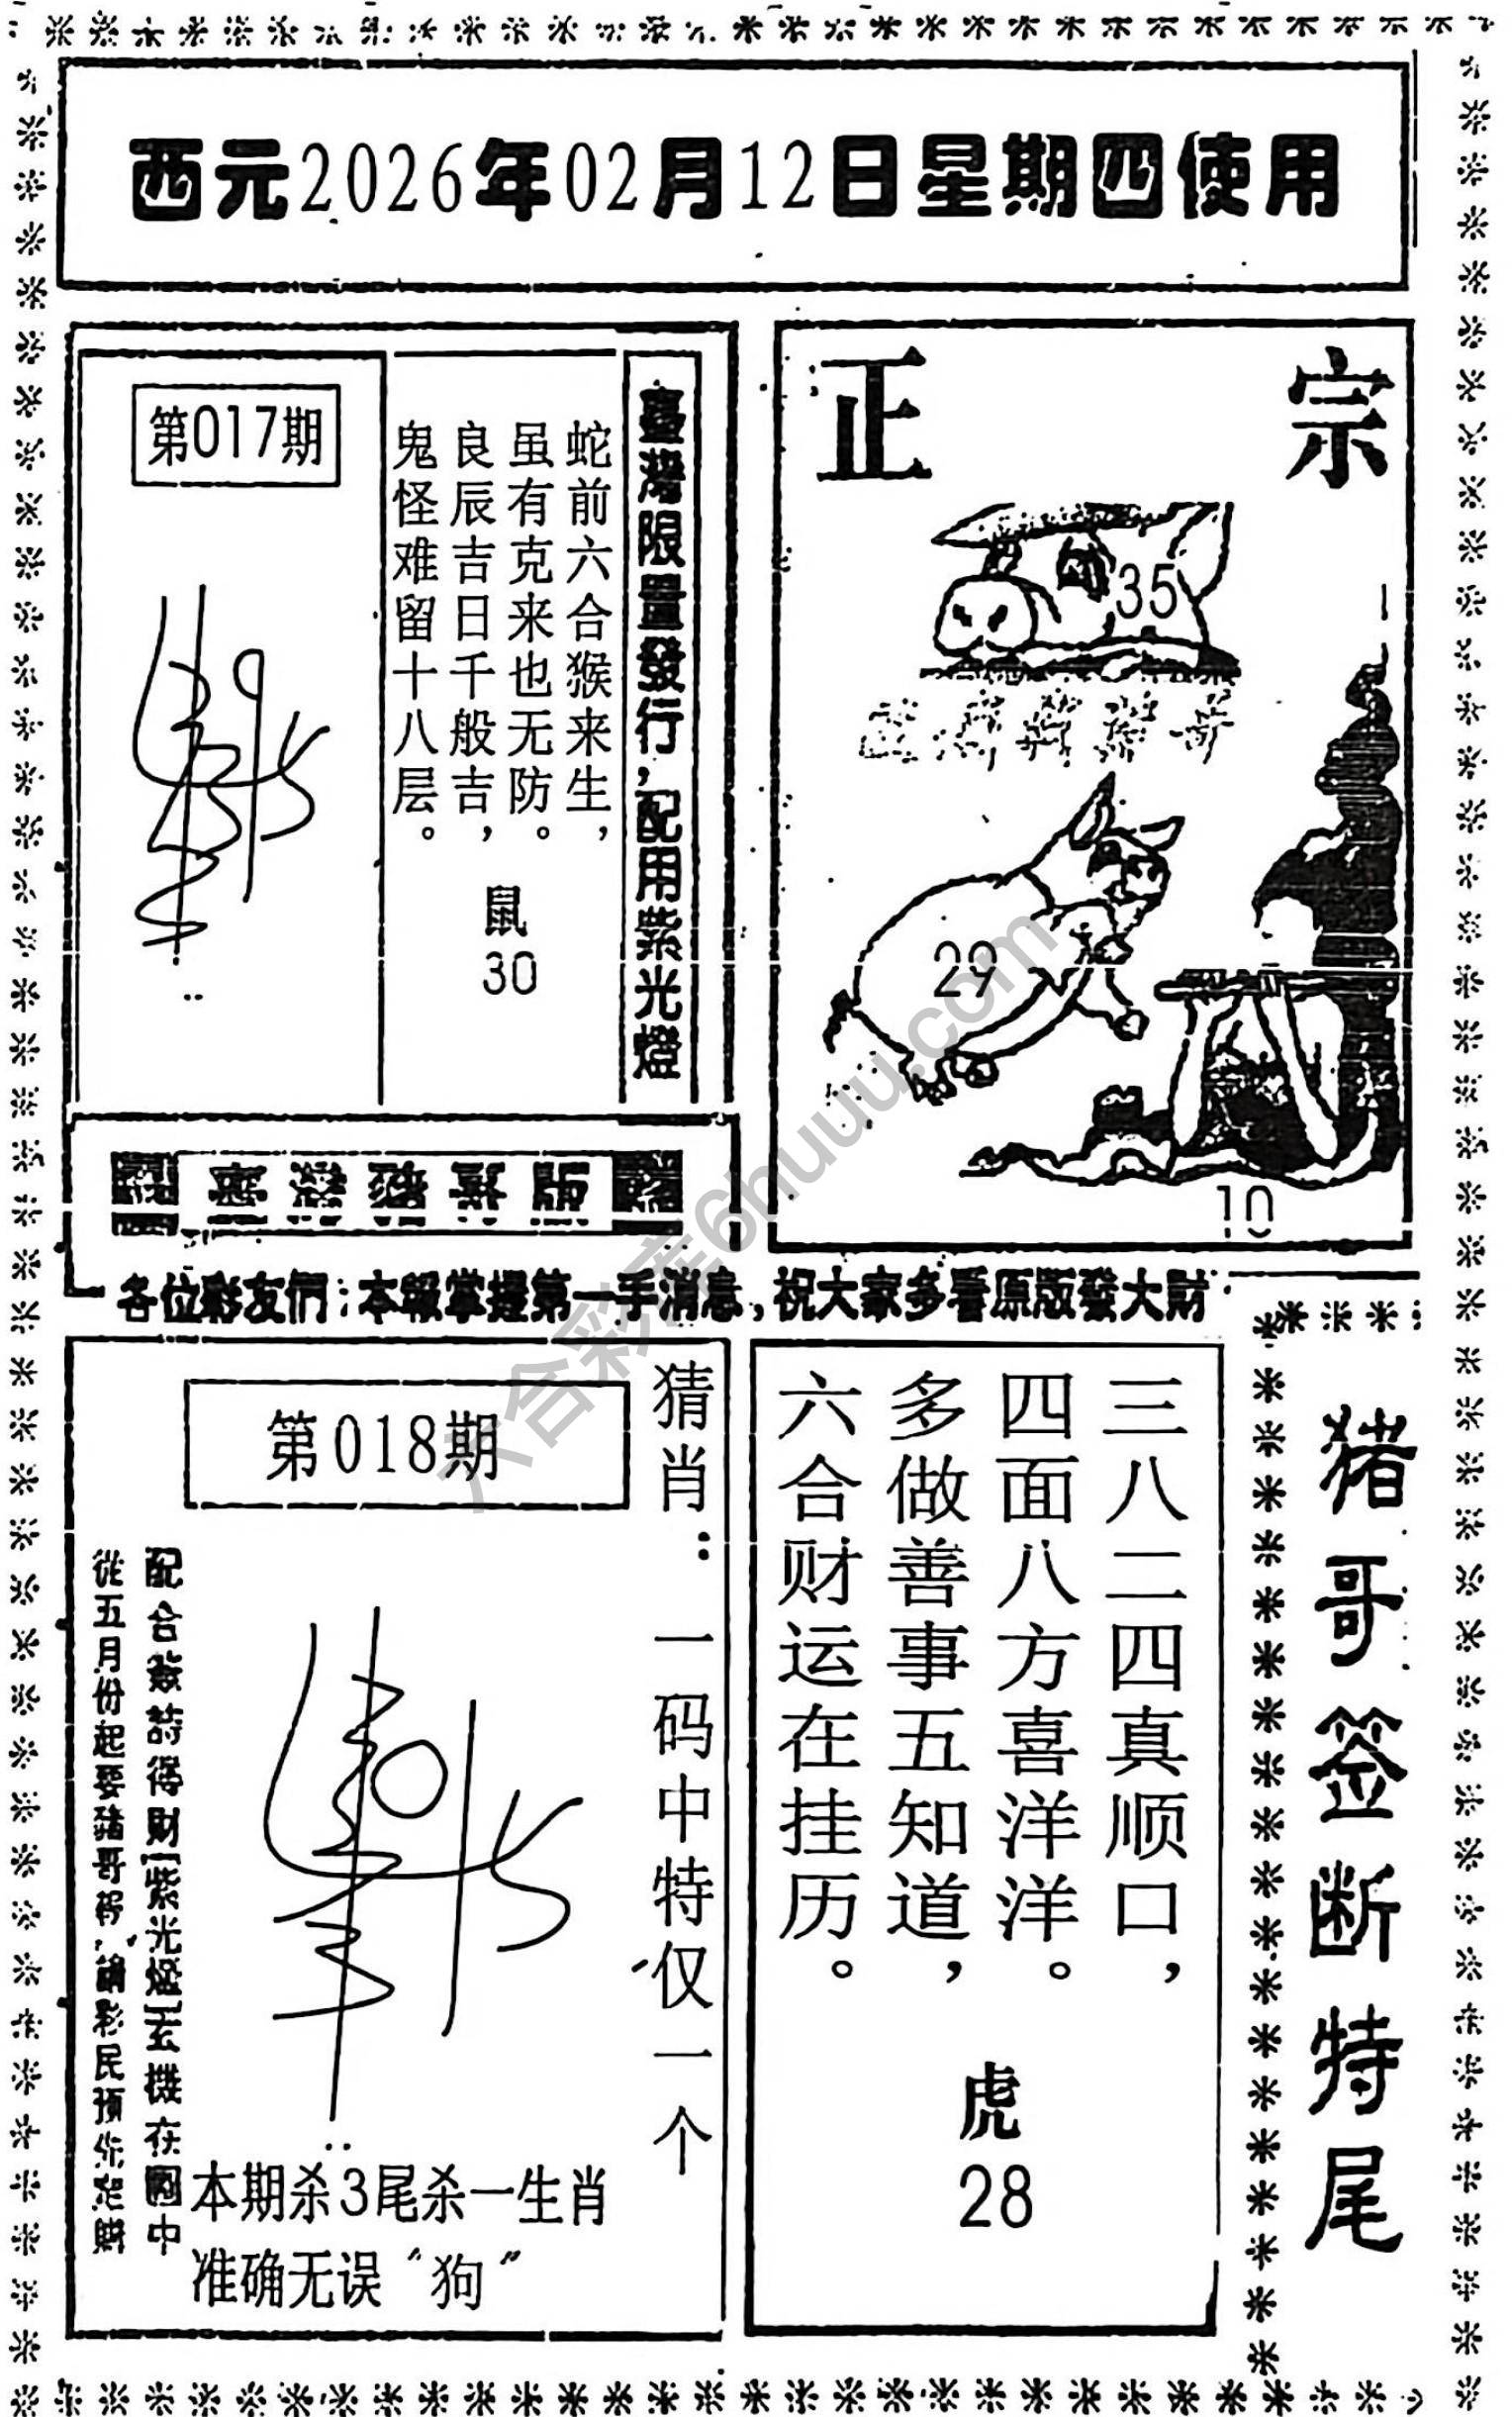 西元2026年02月12日星期四使用
第017期
臺灣限量發行,配用紫光燈
蛇前六合猴来生,
虽有克来也无防。
良辰吉日千般吉,
鬼怪难留十八层。
鼠
30
正 宗
35
29
10
各位彩友們:本報掌握第一手消息,祝大家多看原版發大財
第018期
猜肖:一码中特仅一个
本期杀3尾杀一生肖
准确无误“狗”
三八二四真顺口,
四面八方喜洋洋。
多做善事五知道,
六合财运在挂历。
虎
28
猪哥签断特尾
六合彩库6huuu.com